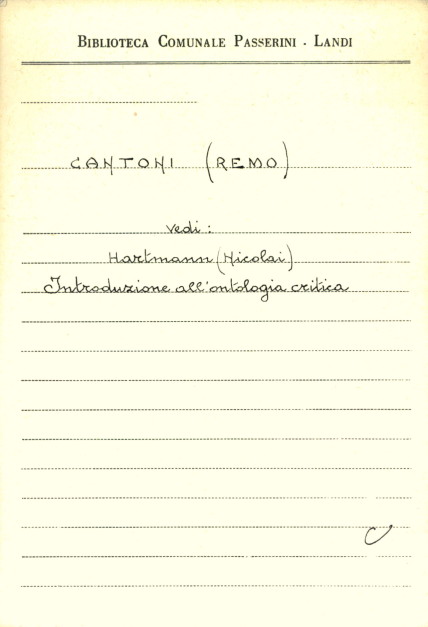 BIBLIOTECA COMUNALE PASSERINI - LANDI
CANTONI (REMO)
vedi:
Hartmann (Nicolai)
Introduzione all'ontologia critica
C